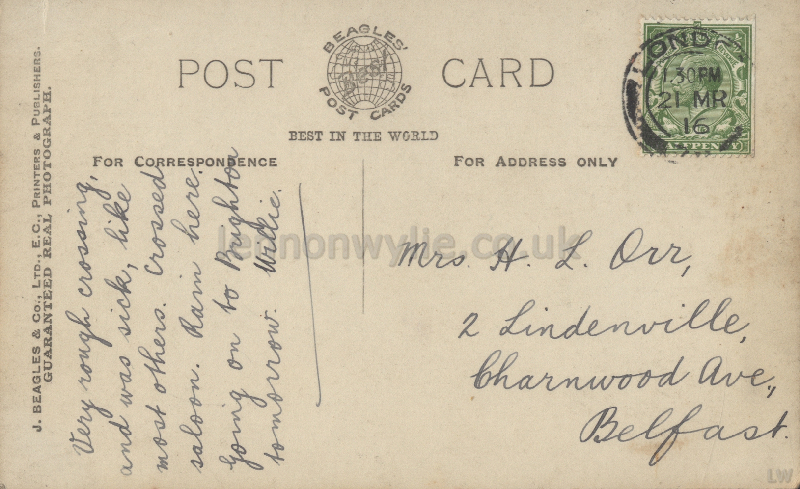 POST CARD
BEAGLES'
POST CARDS
BEST IN THE WORLD
FOR CORRESPONDENCE
FOR ADDRESS ONLY
J. BEAGLES & CO., LTD., E.C., PRINTERS & PUBLISHERS.
GUARANTEED REAL PHOTOGRAPH.
Very rough crossing,
and was sick, like
most others. Crossed
saloon. Rain here.
Going on to Brighton
tomorrow. Willie.
Mrs. H. L. Orr,
2 Lindenville,
Charnwood Ave.,
Belfast.
LOND
1.30 PM
21 MR
16
lennonwylie.co.uk
LW